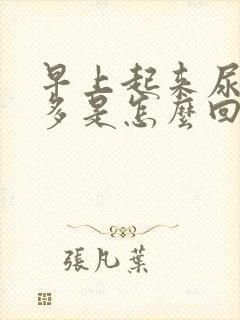 早上起来尿
多是怎麼回
張凡葉